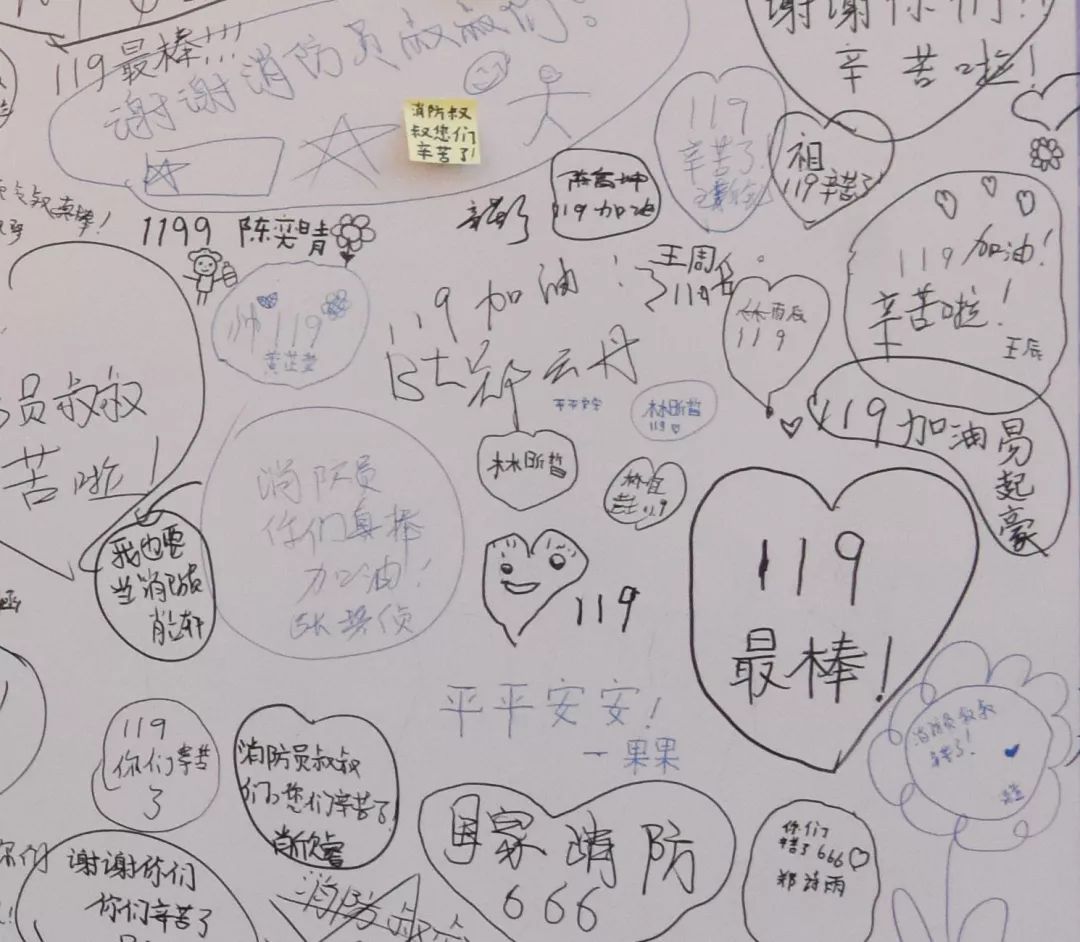 119最棒!!!
谢谢消防员叔叔们!
消防叔
叔您们
辛苦了!
谢谢你们!!
辛苦啦!
119
辛苦了!
祖
119辛苦了
119加油
辛苦了
真棒!
1199 陈奕晴
119加油!
王周名
119
帅119
黄芷莹
郑云丹
119
119加油!
辛苦啦!
王辰
平平安安
林昕哲
119
林昕哲
119加油易起豪
员叔叔
苦啦!
消防员
你们真棒
加油!
我也要
当消防员
119
119
119
最棒!
平平安安!
一果果
消防员叔叔
辛苦了!
119
你们辛苦
了
消防员叔叔
们,您们辛苦了!
国家消防
666
你们
辛苦了666
郑诗雨
谢谢你们
你们辛苦了
你们
消防叔